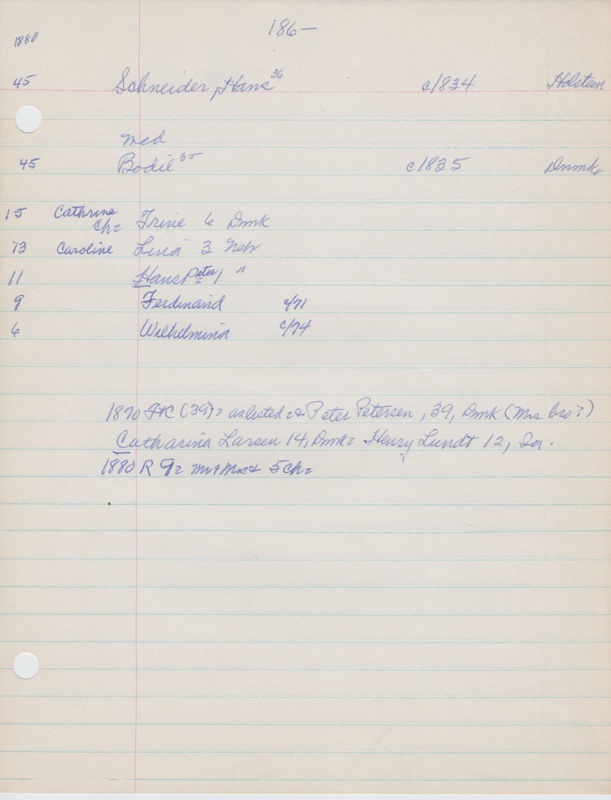 1880 186—
45 Schneider, Hans 36 c/834 Holstein
med
45 Bodil 35 c/835 Dnmk
15 Cathrine Ch= Trine 6 Dmk
13 Caroline Lina 3 Neb
11 Hans Peter 1 "
9 Ferdinand c/71
6 Wilhelmina c/74
1870 (39)= as listed =& Peter Petersen, 39, Dmk (Mrs bro?)
Catharina Larsen 14, Dmk= Henry Lundt 12, Ia.
1880 R 9= Mr & Mrs & 5 Ch=